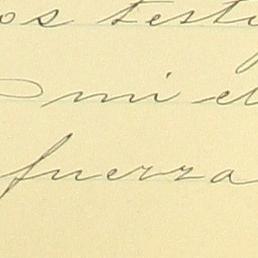 os testi
mi el
fuerza